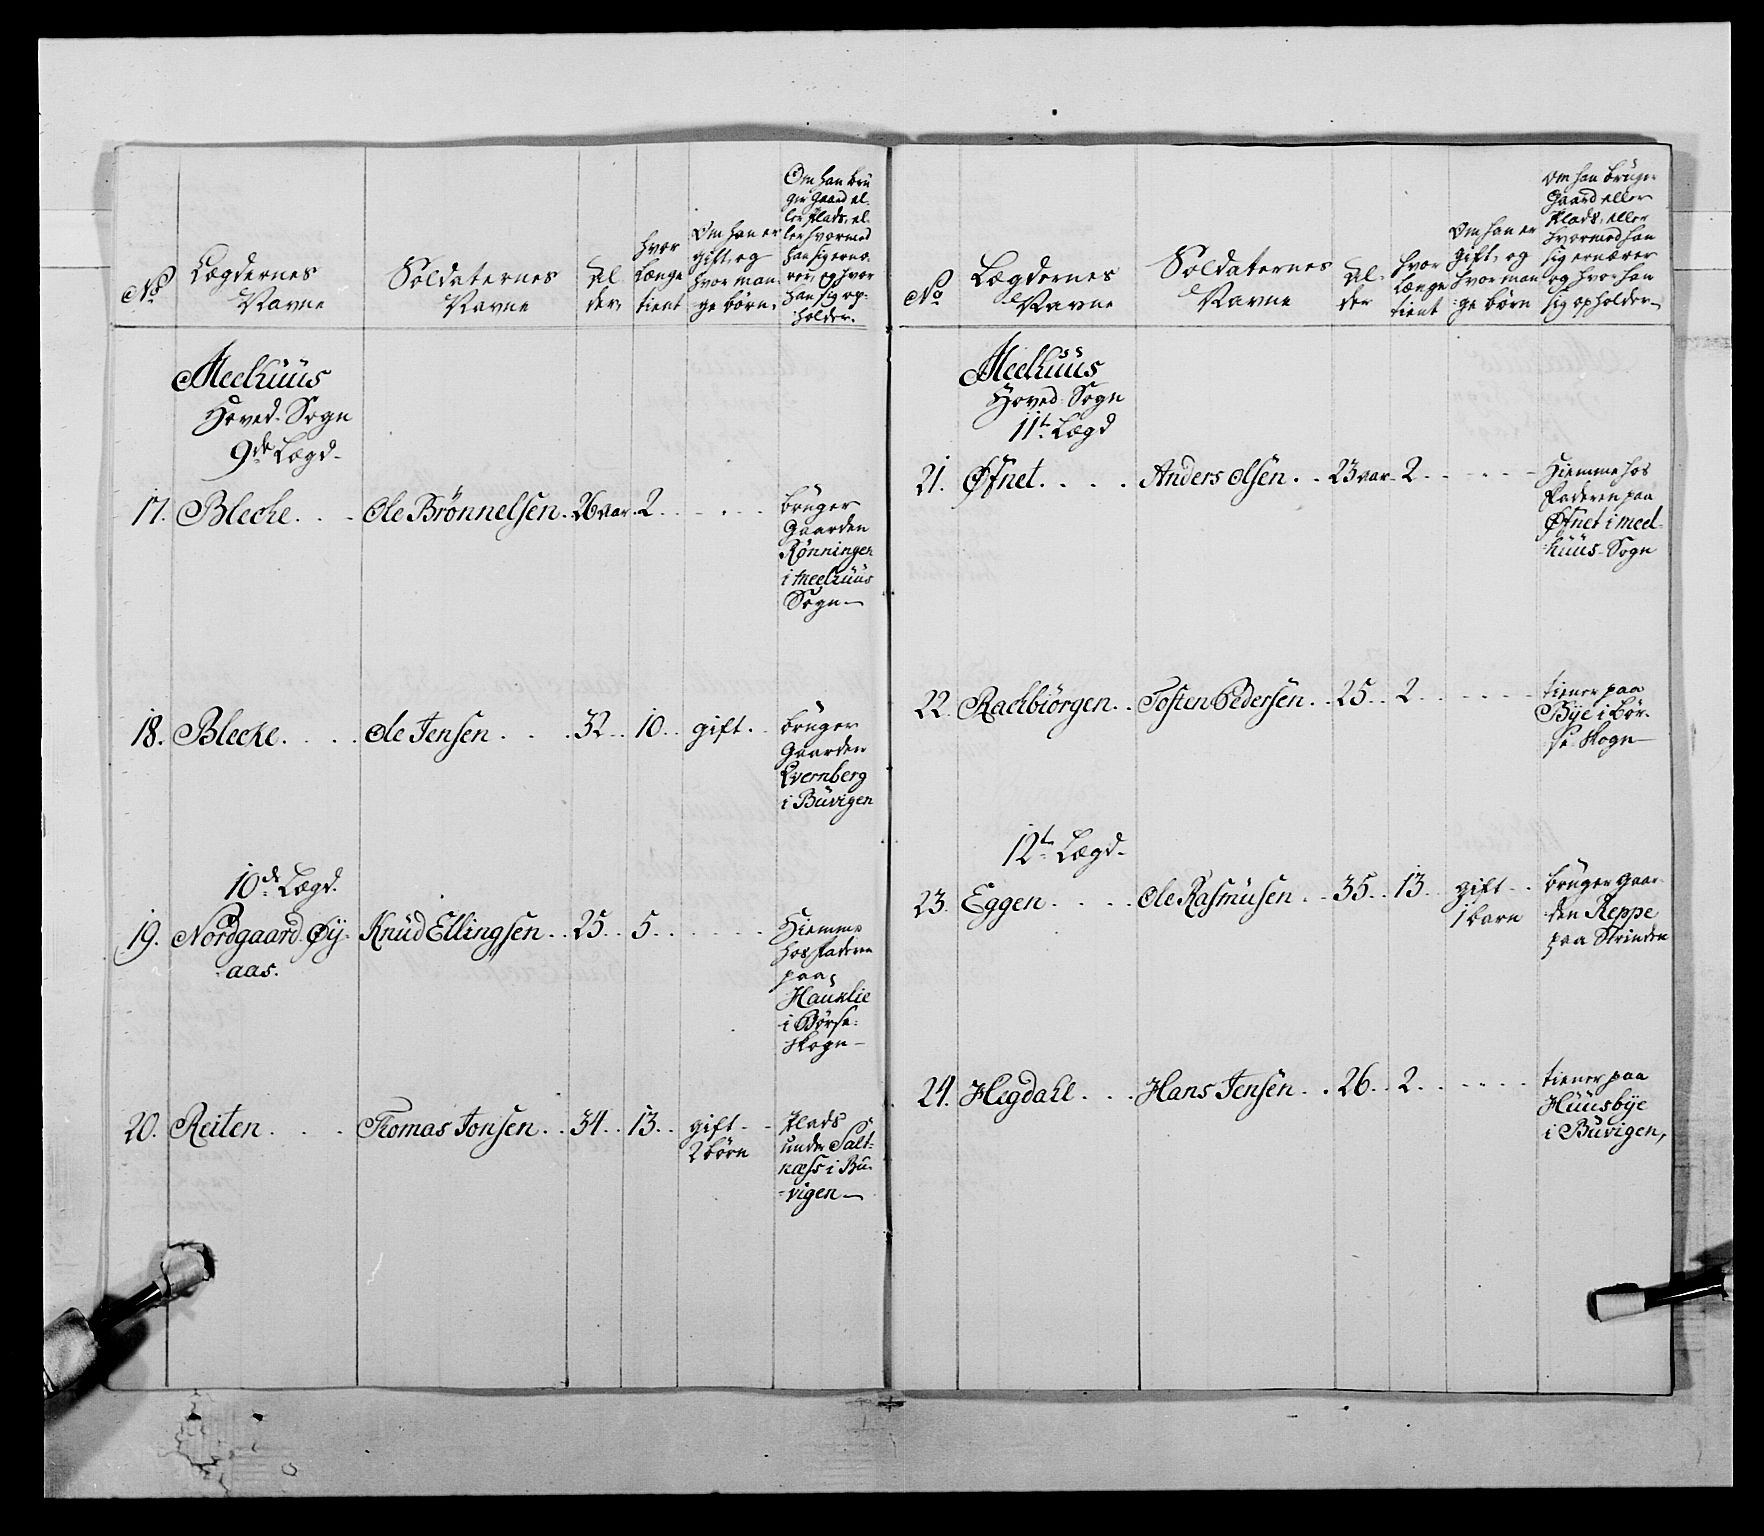 No
Lægdernes
Navne
Soldaternes
Navne
Al
der
hvor
længe
tient
Om han er
gift, og
hvor man-
ge børn.
Om han brü
ger Gaard el-
ler Plads, el-
ler hvormed
han sig ernæ-
rer, og hvor
han sig op-
holder.
Meelhüüs
Hoved-Sogn
9de Lægd-
17. Blecke. . . Ole Brönnelsen. 26 aar. 2. . . . .
brüger
Gaarden
Rönningen
i Meelhüüs
Sogn-
18. Blecke. . . . Ole Jensen . . . 32. . 10. . gift. .
brüger
Gaarden
Qvernberg
i Büvigen
10de Lægd.
19. Nordgaard. Øy- Knüd Ellingsen. . 25. . 5. . . . . .
aas.
Hiemme
hos Faderen
paa
Haüklie
i Børse-
skogn-
20. Reiten. . . . Thomas Jonsen. . 34. . 13. . gift . .
2 børn
Plads
under Salt-
næss i Bü-
vigen-
No
Lægdernes
Navne
Soldaternes
Navne
Al-
der
hvor
længe
tient
Om han er
gift, og
hvor man
ge børn
Om han brüger
Gaard eller
Plads, eller
hvormed han
sig ernærer
og hvor han
sig opholder-
Meelhüüs
Hoved-Sogn
11te Lægd
21. Øfnet. . . . Anders Olsen. . 23 aar. 2. . . . .
Hiemme hos
Faderen paa
Øfnet i Meel-
hüüs-Sogn
22. Rachbiörgen. . Tosten Pedersen. . 25. . 2. . . . . .
tiener paa
Bÿe i Bör-
se-skogn-
12te Lægd-
23. Eggen. . . . Ole Rasmüsen. . 35. . 13. . gift . .
1 barn
brüger Gaar-
den Reppe
paa Strinden
24. Hegdahl. . . Hans Jensen. . 26. . 2. . . . . .
tiener paa
Hüüsbÿe
i Büvigen,